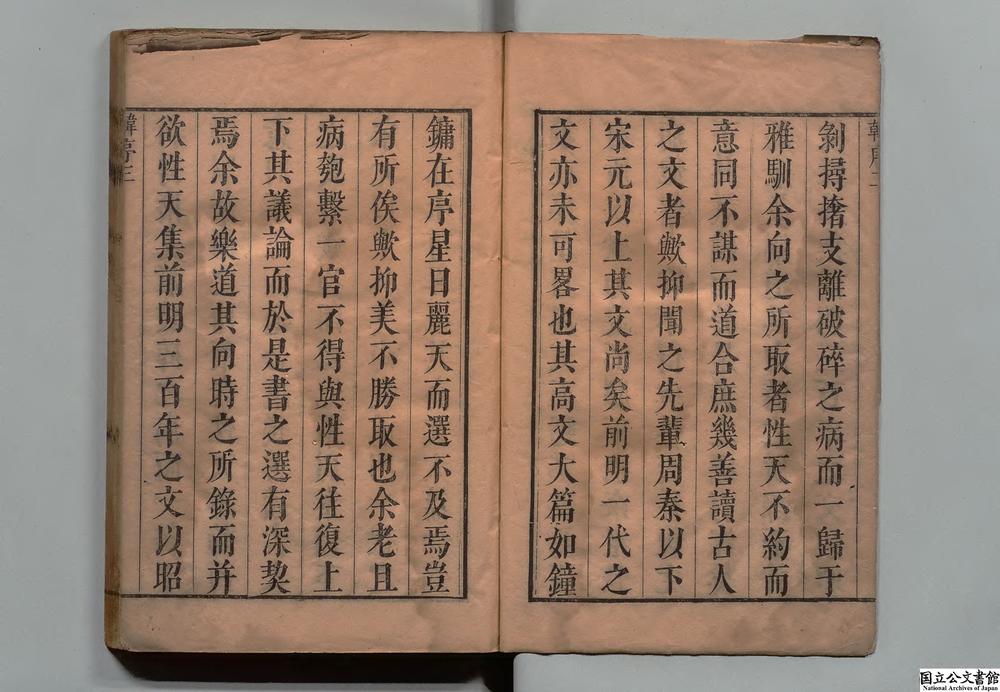 剝撏撦支離破碎之病而一歸于
雅馴余向之所取者性天不約而
意同不謀而道合庶幾善讀古人
之文者歟抑聞之先輩周秦以下
宋元以上其文尚矣前明一代之
文亦未可畧也其高文大篇如鐘
鏞在序星日麗天而選不及焉豈
有所俟歟抑美不勝取也余老且
病匏繫一官不得與性天往復上
下其議論而於是書之選有深契
焉余故樂道其向時之所錄而并
欲性天集前明三百年之文以昭
韓序三
国立公文書館
National Archives of Japan